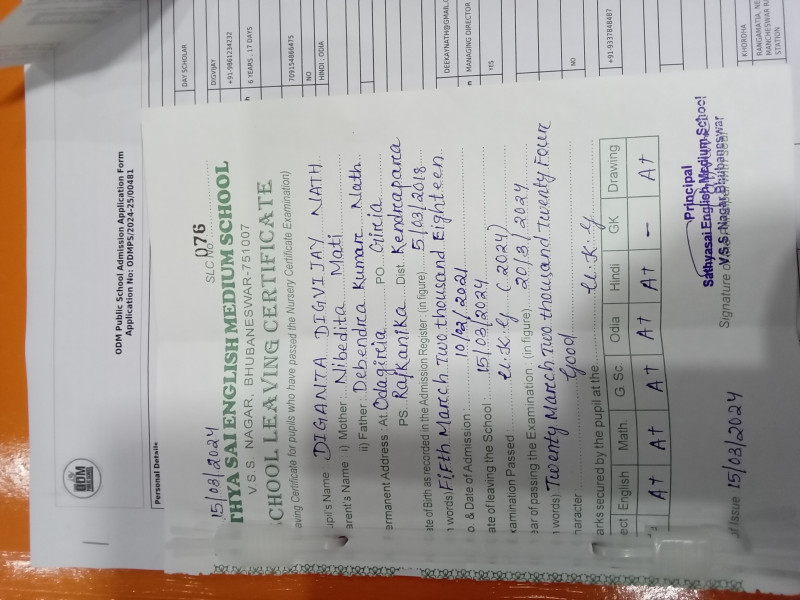 ODM Public School Admission Application Form
Application No: ODMPS/2024-25/00481
ODM
Personal Details
DAY SCHOLAR
DIGVIJAY
+91-9861234232
6 YEARS , 17 DAYS
709154866475
NO
HINDI ; ODIA
DEEKAYNATH@GMAIL.C
MANAGING DIRECTOR
YES
NO
+91-9337848487
KHORDHA
RANGAMATIA, NE
MANCHESWAR RA
STATION
15/03/2024
SLC No. 076
THYA SAI ENGLISH MEDIUM SCHOOL
V.S.S. NAGAR, BHUBANESWAR-751007
CHOOL LEAVING CERTIFICATE
aving Certificate for pupils who have passed the Nursery Certificate Examination)
upil's Name DIGANTA DIGVIJAY NATH
arent's Name : i) Mother Nibedita Mati
ii) Father: Debendra Kumar Nath
ermanent Address : At Odagircia PO. Giria
PS. Rajkanika Dist. Kendrapara
ate of Birth as recorded in the Admission Register : (in figure) 5/03/2018
words) Fifth March Two thousand Eighteen
o & Date of Admission 10/02/2021
ate of leaving the School 15/03/2024
xamination Passed U.K.G (2024)
ear of passing the Examination (in figure) 20/3/2024
words) Twenty March Two thousand Twenty Four
haracter Good
arks secured by the pupil at the U.K.G
ect English Math. G. Sc. Odia Hindi GK Drawing
A+ A+ A+ A+ A+ - A+
of Issue 15/03/2024
Principal
Sathyasai English Medium School
V.S.S Nagar, Bhubaneswar
Signature of